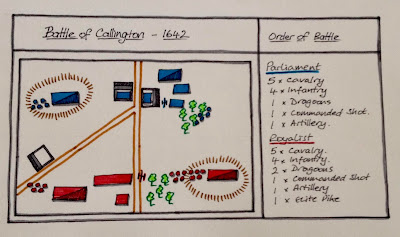 Battle of Callington - 1642
Order of Battle
Parliament
5 x Cavalry
4 x Infantry
1 x Dragoons
1 x Commanded Shot.
1 x Artillery.
Royalist
5 x Cavalry.
4 x Infantry.
2 x Dragoons
1 x Commanded Shot
1 x Artillery
1 x Elite Pike